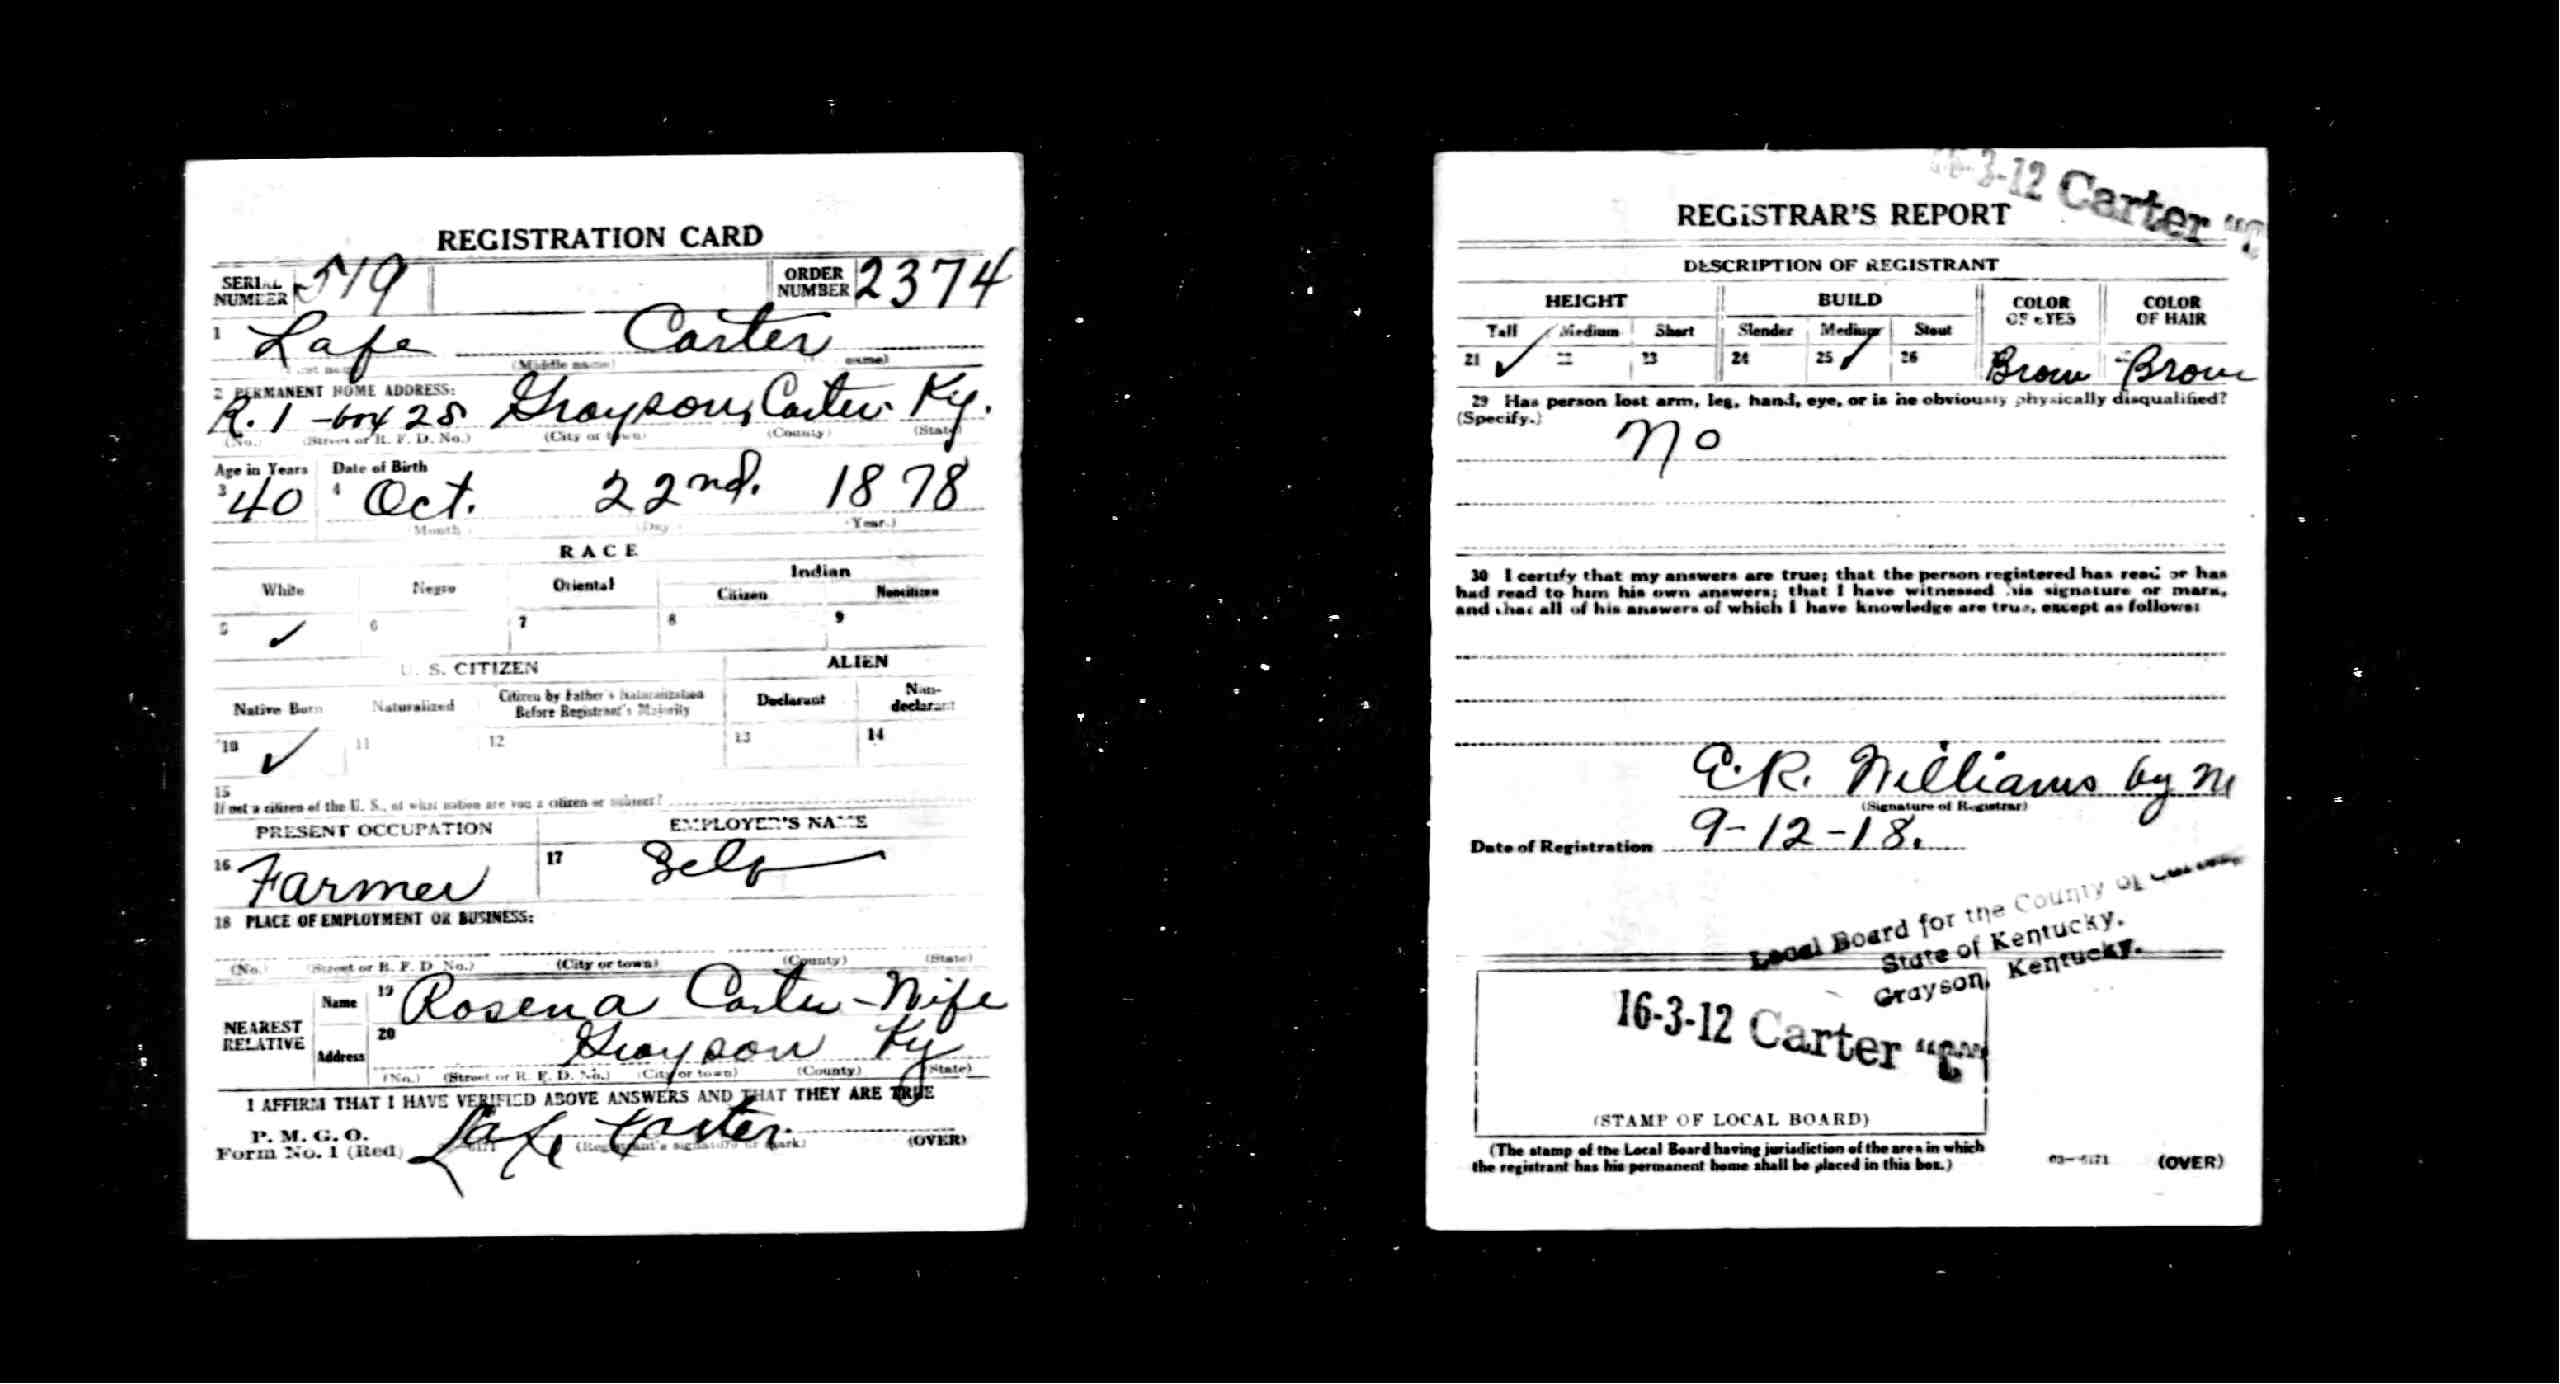 REGISTRATION CARD
SERIAL NUMBER 519 ORDER NUMBER 2374
1 Lafe Carter
(Middle name) name)
2 PERMANENT HOME ADDRESS:
R. 1 - box 28 Grayson, Carter Ky.
(No.) (Street or R. F. D. No.) (City or town) (County) (State)
Age in Years Date of Birth
3 40 4 Oct. 22nd. 1878
Month (Day Year.)
RACE
White Negro Oriental Indian
Citizen Noncitizen
5 ✓ 6 7 8 9
U. S. CITIZEN ALIEN
Native Born Naturalized Citizen by Father's Naturalization Before Registrant's Majority Declarant Non-declarant
10 ✓ 11 12 13 14
15
If not a citizen of the U. S., of what nation are you a citizen or subject?
PRESENT OCCUPATION EMPLOYER'S NAME
16 Farmer 17 Self
18 PLACE OF EMPLOYMENT OR BUSINESS:
(No.) (Street or R. F. D. No.) (City or town) (County) (State)
NEAREST RELATIVE Name 19 Rosena Carter - Wife
Address 20 Grayson Ky
(No.) (Street or R. F. D. No.) (City or town) (County) (State)
I AFFIRM THAT I HAVE VERIFIED ABOVE ANSWERS AND THAT THEY ARE TRUE
P. M. G. O.
Form No. 1 (Red) Lafe Carter (Registrant's signature or mark) (OVER)
16-3-12 Carter "C
REGISTRAR'S REPORT
DESCRIPTION OF REGISTRANT
HEIGHT BUILD COLOR OF EYES COLOR OF HAIR
Tall Medium Short Slender Medium Stout
21 ✓ 22 23 24 25 ✓ 26 Brow Brow
29 Has person lost arm, leg, hand, eye, or is he obviously physically disqualified?
(Specify.)
No
30 I certify that my answers are true; that the person registered has read or has
had read to him his own answers; that I have witnessed his signature or mark,
and that all of his answers of which I have knowledge are true, except as follows:
E.R. Williams by M
(Signature of Registrar)
Date of Registration 9-12-18.
Local Board for the County of Carter,
State of Kentucky.
Grayson, Kentucky.
16-3-12 Carter "C"
(STAMP OF LOCAL BOARD)
(The stamp of the Local Board having jurisdiction of the area in which
the registrant has his permanent home shall be placed in this box.)
03—6171 (OVER)